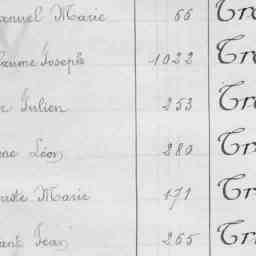 anuel Marie 66 Tre
laume Joseph 1022 Tre
Julien 253 Tre
ne Léon 280 Tre
uste Marie 171 Tre
ant Jean 265 Tre